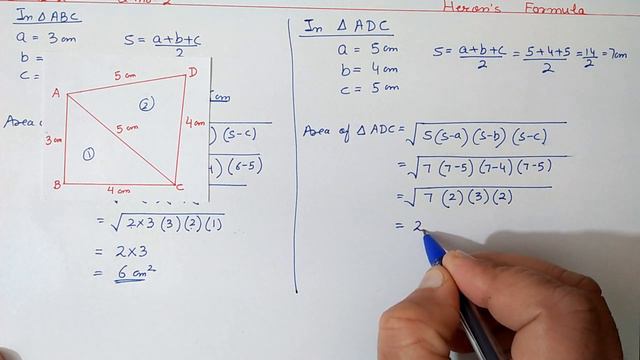 Heron's Formula
In △ABC
a = 3 cm
S = a+b+c
2
b =
c =
A
5 cm
D
②
3 cm
5 cm
4 cm
①
B
4 cm
C
cm
Area
) (s-c)
) (6-5)
= √2×3 (3)(2)(1)
= 2×3
= 6 cm²
In △ ADC
a = 5 cm
b = 4 cm
c = 5 cm
S = a+b+c/2 = 5+4+5/2 = 14/2 = 7cm
Area of △ ADC = √S(s-a) (s-b) (s-c)
= √7 (7-5) (7-4) (7-5)
= √7 (2) (3) (2)
= 2